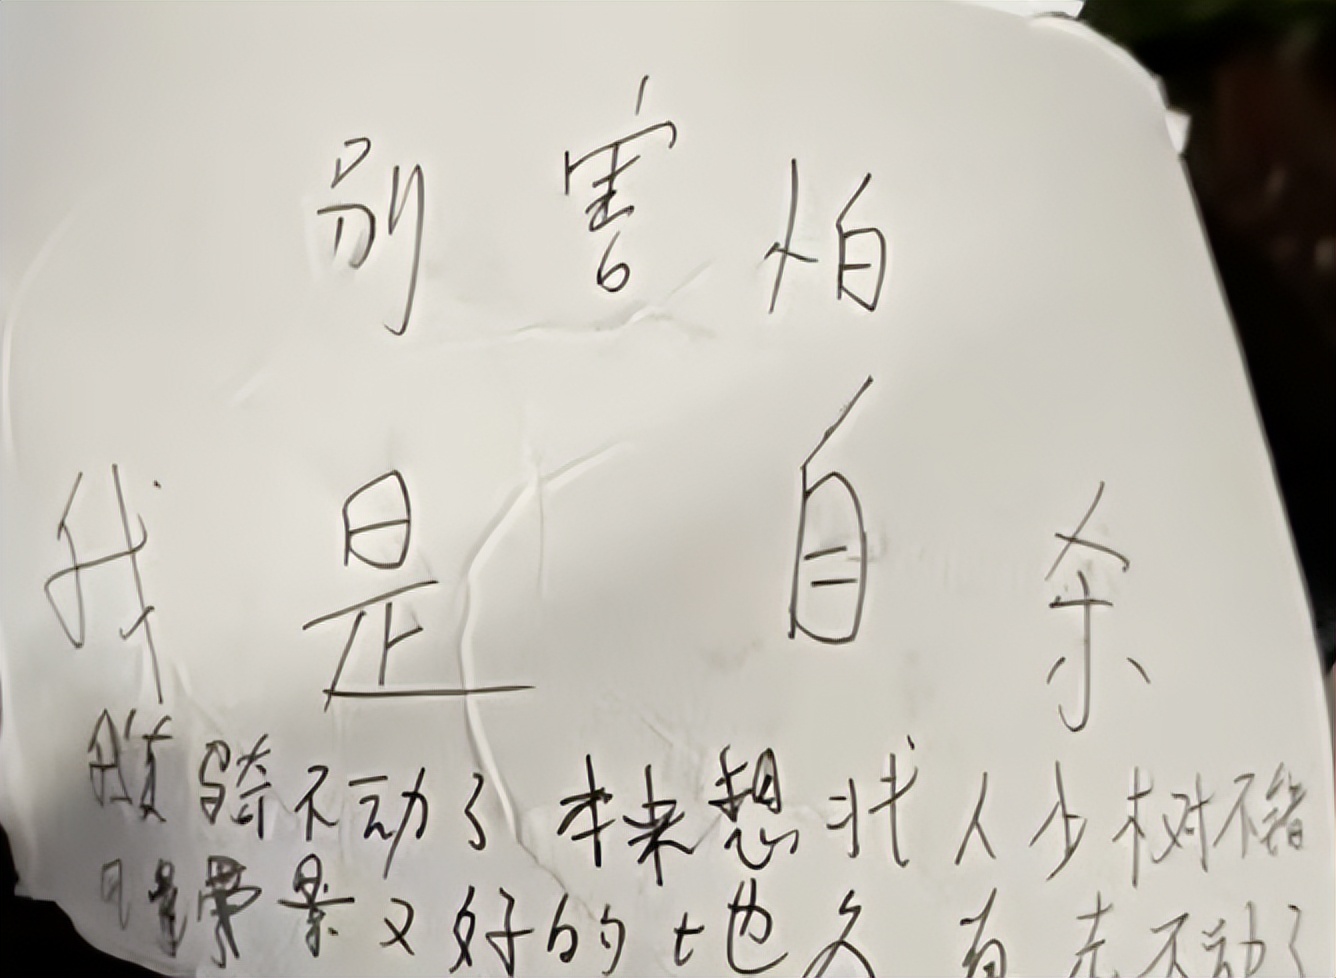 别害怕
我是自杀
骑不动了 本来想找人少树不错
景又好的地 走不动了